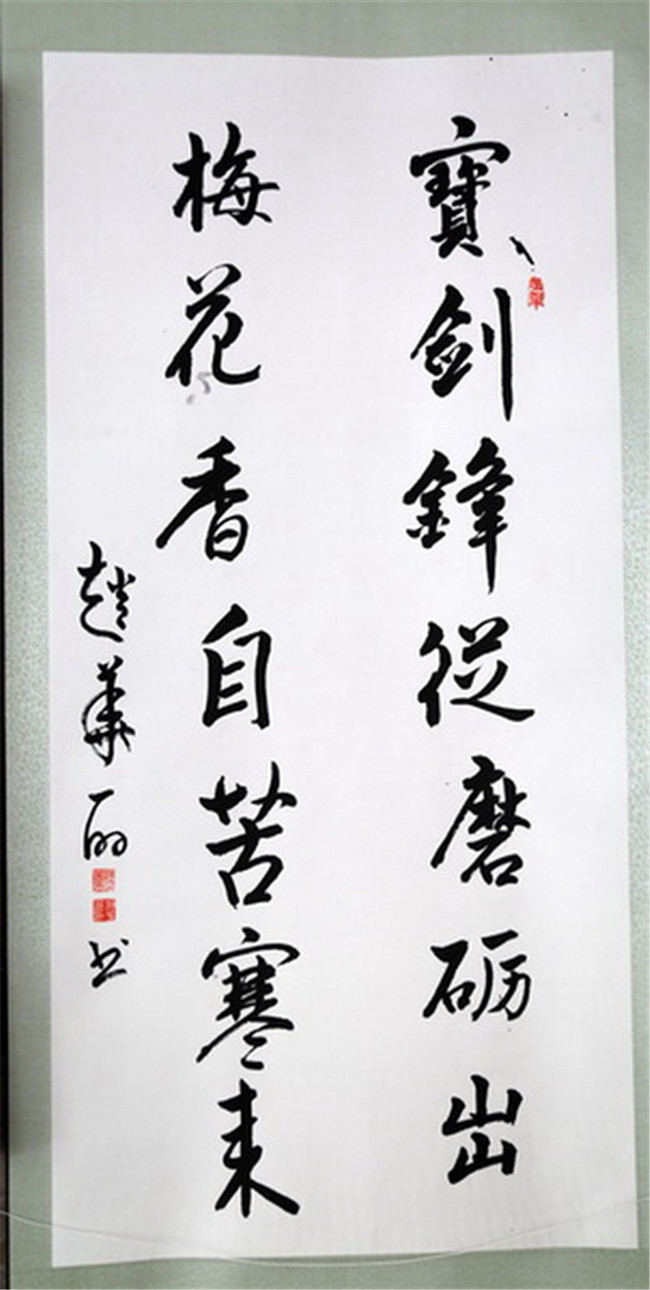 寶劍鋒從磨砺出
梅花香自苦寒來
趙華丽书